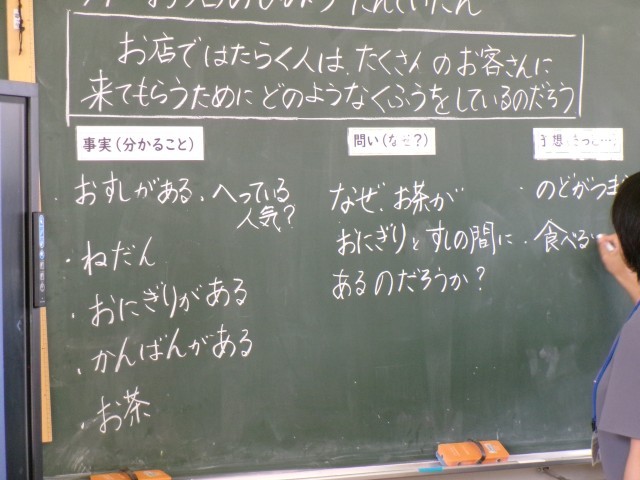 お店ではたらく人は、たくさんのお客さんに
来てもらうためにどのようなくふうをしているのだろう
事実(分かること)
・おすしがある、へっている
人気?
・ねだん
・おにぎりがある
・かんばんがある
・お茶
問い(なぜ?)
なぜ、お茶が
おにぎりとすしの間に
あるのだろうか?
予想
・のどがつま
・食べる